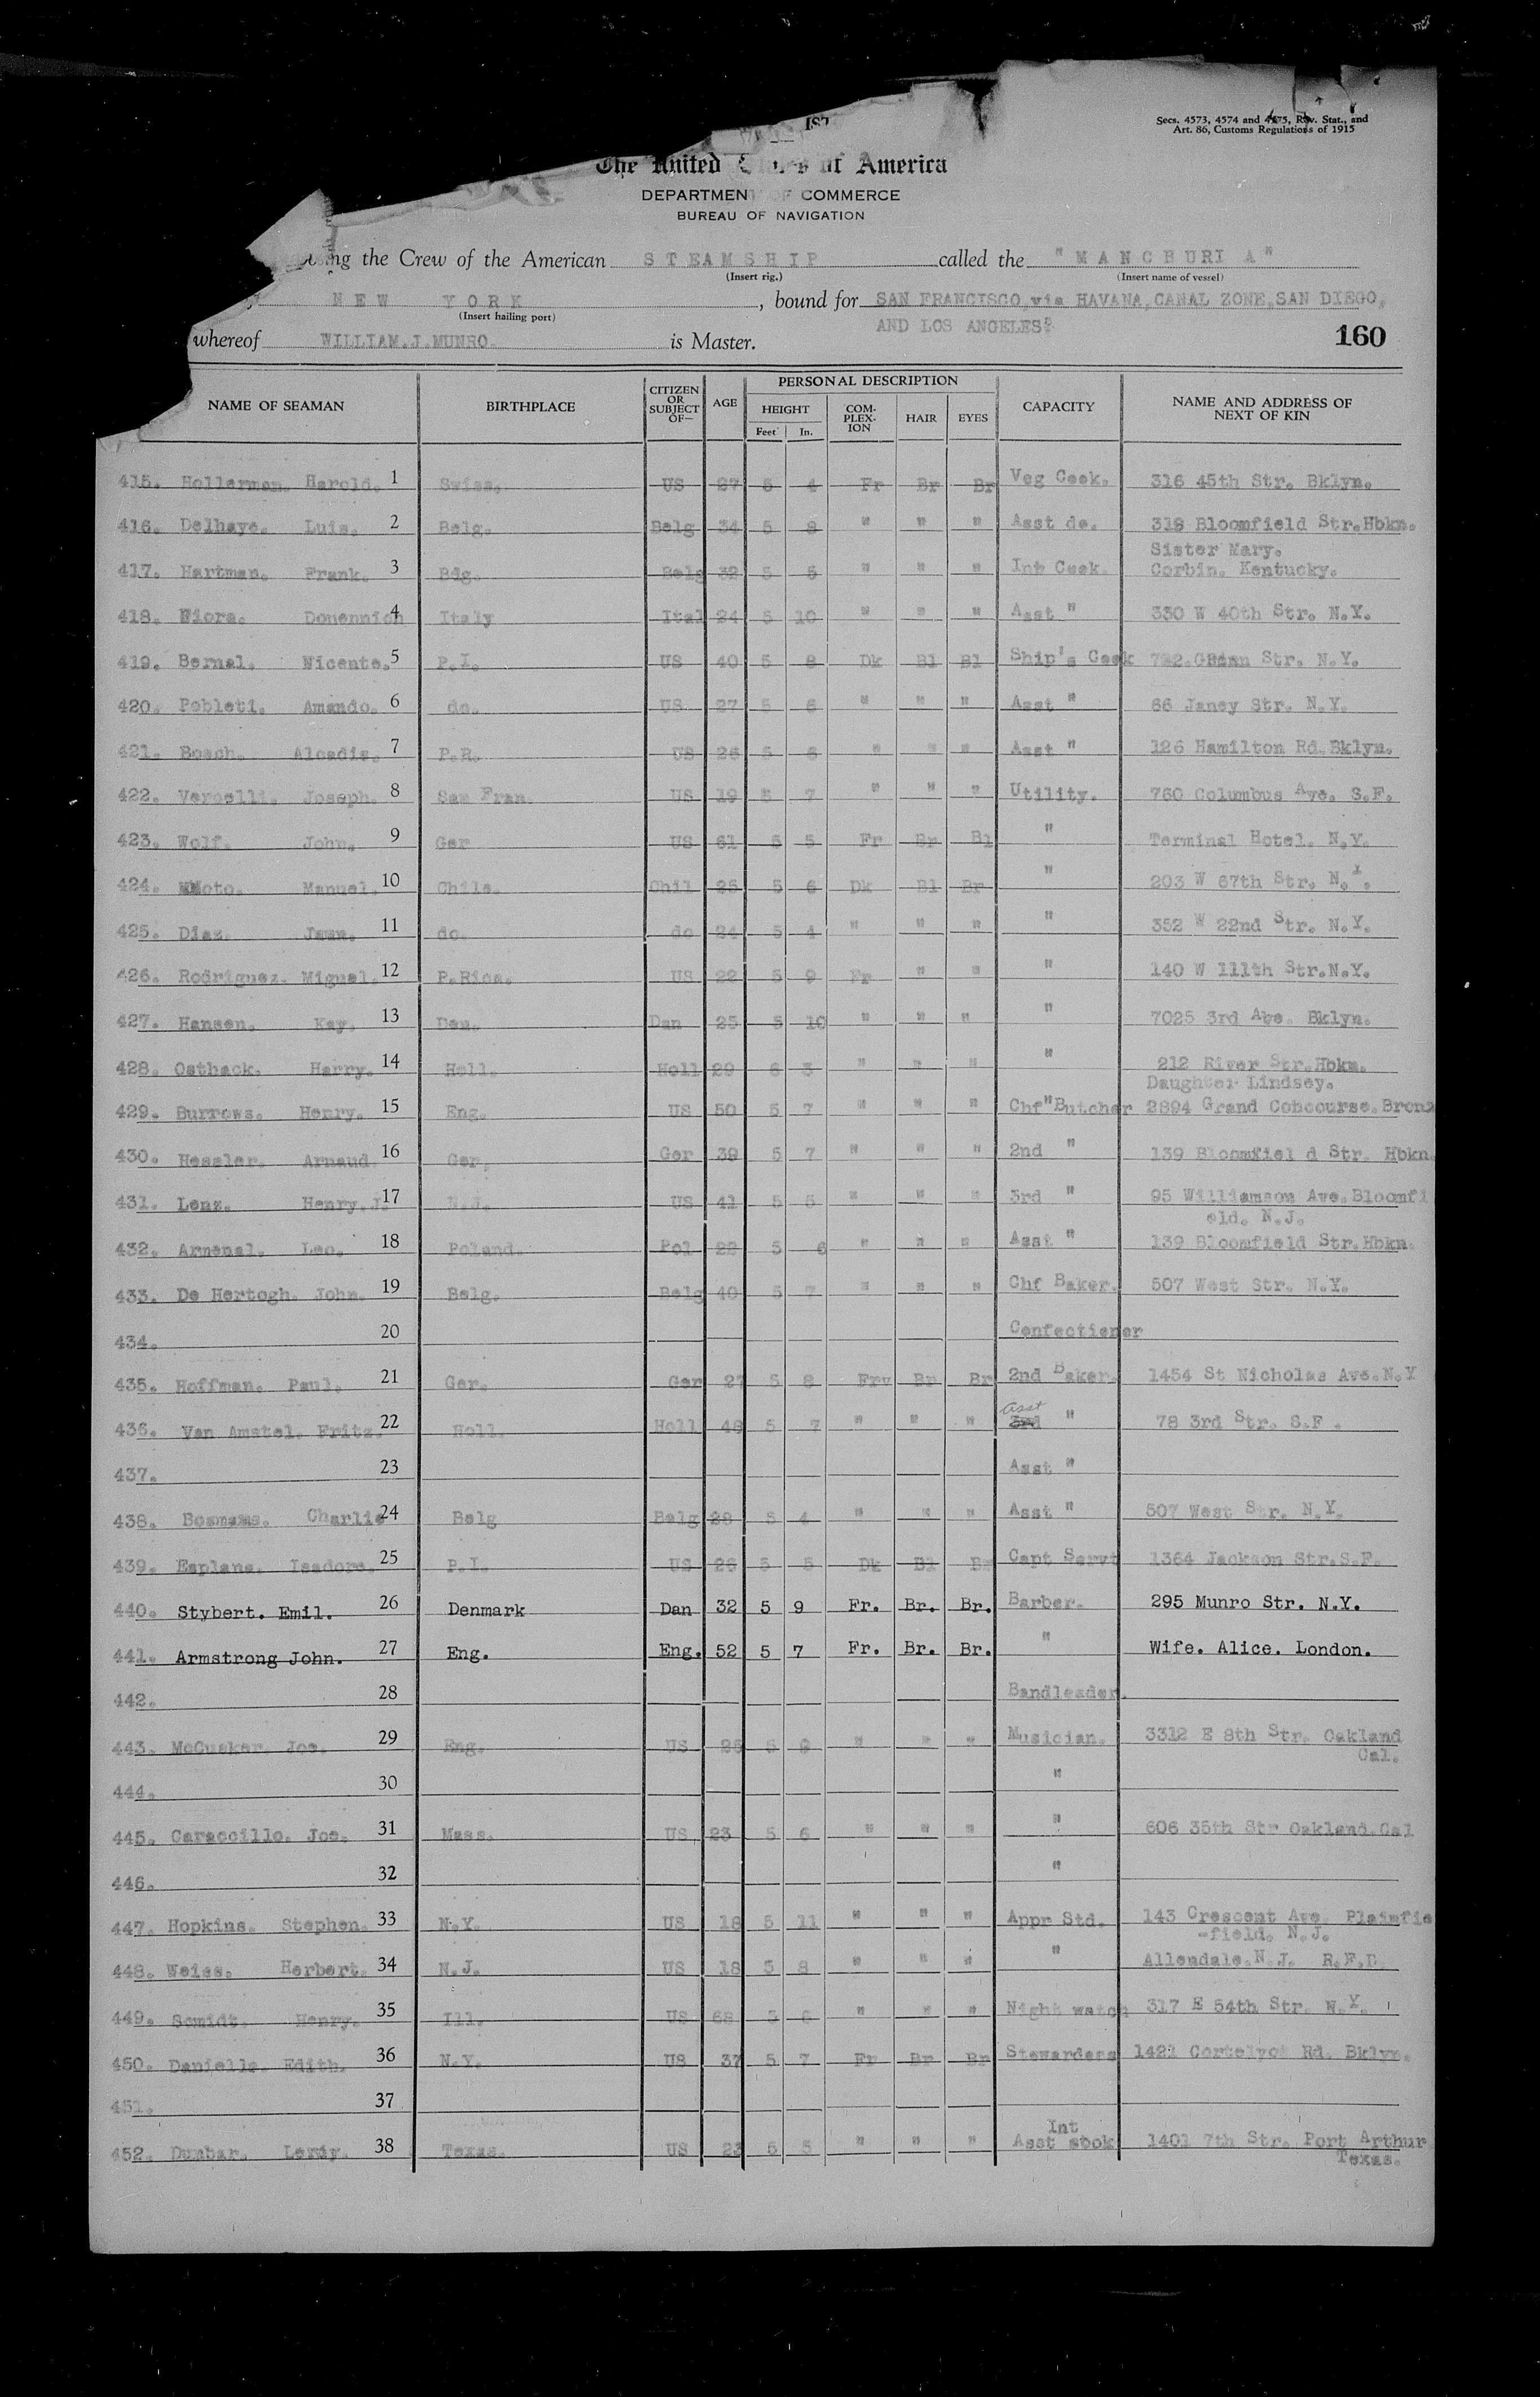 Secs. 4573, 4574 and 4575, Rev. Stat., and
Art. 86, Customs Regulations of 1915
The United States of America
DEPARTMENT OF COMMERCE
BUREAU OF NAVIGATION
the Crew of the American STEAMSHIP called the "MANCHURIA"
(Insert rig.) (Insert name of vessel)
NEW YORK, bound for SAN FRANCISCO, via HAVANA, CANAL ZONE, SAN DIEGO,
(Insert hailing port)
AND LOS ANGELES
160
whereof WILLIAM.J.MUNRO. is Master.
NAME OF SEAMAN BIRTHPLACE CITIZEN OR SUBJECT OF— AGE PERSONAL DESCRIPTION CAPACITY NAME AND ADDRESS OF NEXT OF KIN
HEIGHT COM-PLEX-ION HAIR EYES
Feet In.
415. Hollerman. Harold. 1 Swiss. US 27 5 4 Fr Br Br Veg Cook. 316 45th Str. Bklyn.
416. Delhaye. Luis. 2 Belg. Belg 34 5 8 " " " Asst do. 319 Bloomfield Str.Hbkn.
Sister Mary.
417. Hartman. Frank. 3 Bdg. Belg 32 5 5 " " " Int Cook. Corbin. Kentucky.
418. Niora. Donennich 4 Italy Ital 24 5 10 " " " Asst " 330 W 40th Str. N.Y.
419. Bernal. Nicente. 5 P.I. US 40 5 8 Dk Bl Bl Ship's Cook Str. N.Y.
420. Pobleti. Amando. 6 do. US 27 5 6 " " " Asst " 66 Janey Str. N.Y.
421. Bosch. Alcadis. 7 P.R. US 26 5 6 " " " Asst " 126 Hamilton Rd.Bklyn.
422. Vercelli. Joseph. 8 San Fran. US 19 5 7 " " " Utility. 760 Columbus Ave. S.F.
423. Wolf. John. 9 Ger US 61 5 5 Fr Br Bl " Terminal Hotel. N.Y.
424. Moto. Manuel. 10 Chile. Chil 25 5 6 Dk Bl Br " 203 W 67th Str. N.Y.
425. Diaz. Juan. 11 do. do 24 5 4 " " " " 352 W 22nd Str. N.Y.
426. Rodriguez. Miguel. 12 P.Rica. US 22 5 9 Fr " " " 140 W 111th Str.N.Y.
427. Hansen. Kay. 13 Den. Dan 25 5 10 " " " " 7025 3rd Ave. Bklyn.
428. Osthack. Harry. 14 Holl. Holl 29 6 3 " " " " 212 River Str.Hbkn.
Daughter Lindsey.
429. Burrows. Henry. 15 Eng. US 50 5 7 " " " Chf"Butcher 2894 Grand Cobcourse.Bronx
430. Hessler. Arnaud. 16 Ger. Ger 39 5 7 " " " 2nd " 139 Bloomfiel d Str. Hbkn.
431. Lenz. Henry.J. 17 N.J. US 41 5 5 " " " 3rd " 95 Williamson Ave.Bloomfi
eld. N.J.
432. Armenal. Leo. 18 Poland. Pol 22 5 6 " " " Asst " 139 Bloomfield Str.Hbkn.
433. De Hertogh. John. 19 Belg. Belg 40 5 7 " " " Chf Baker. 507 West Str. N.Y.
434. 20 Confectioner
435. Hoffman. Paul. 21 Ger. Ger 27 5 8 Br Br 2nd Baker. 1454 St Nicholas Ave.N.Y
436. Van Amstel. Fritz. 22 Holl. Holl 48 5 7 " " " Asst 3rd " 78 3rd Str. S.F .
437. 23 Asst "
438. Bosmans. Charlie 24 Belg Belg 28 5 4 " " " Asst " 507 West Str. N.Y.
439. Esplana. Isadore. 25 P.I. US 26 5 5 Dk Bl Br Capt Servt 1364 Jackson Str.S.F.
440. Stybert. Emil. 26 Denmark Dan 32 5 9 Fr. Br. Br. Barber. 295 Munro Str. N.Y.
441. Armstrong John. 27 Eng. Eng. 52 5 7 Fr. Br. Br. " Wife. Alice. London.
442. 28 Bandleader.
443. McCusker Joe. 29 Eng. US 26 5 9 " " " Musician. 3312 E 8th Str. Oakland
Cal.
444. 30 "
445. Caraccillo. Joe. 31 Mass. US 23 5 6 " " " " 606 35th Str Oakland.Cal
446. 32 "
447. Hopkins. Stephen. 33 N.Y. US 18 5 11 " " " Appr Std. 143 Crescent Ave. Plainfie
-field. N.J.
448. Weiss. Herbert. 34 N.J. US 18 5 8 " " " " Allendale.N.J. R.F.D.
449. Scmidt. Henry. 35 Ill. US 68 5 6 " " " Night watch 317 E 54th Str. N.Y.
450. Daniells. Edith. 36 N.Y. US 37 5 7 Fr Br Br Stewardess 1421 Cortelyou Rd. Bklyn.
451. 37
Int
452. Dunbar. Leroy. 38 Texas. US 23 5 5 " " " Asst cook 1401 7th Str. Port Arthur
Texas.